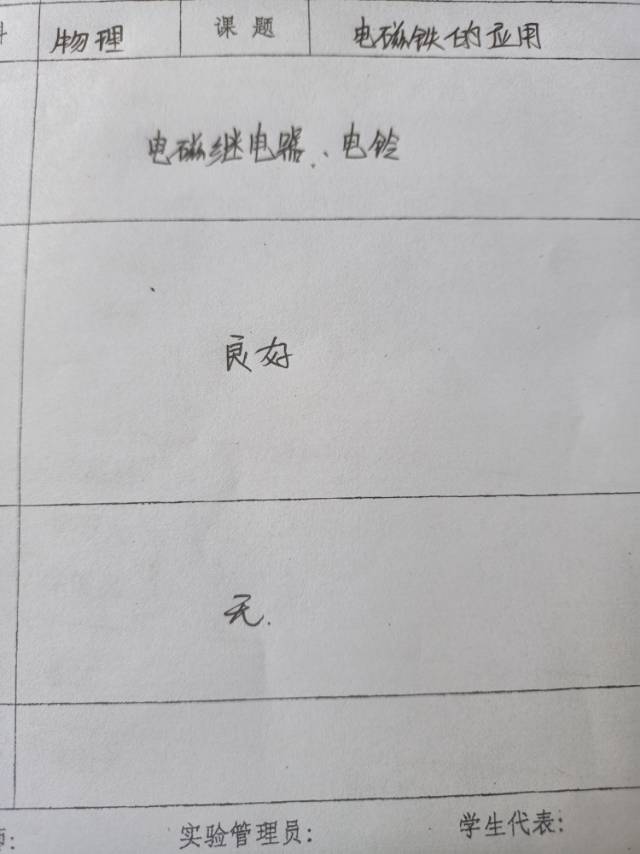 物理 课题 电磁铁的应用
电磁继电器、电铃
良好
无.
实验管理员: 学生代表: